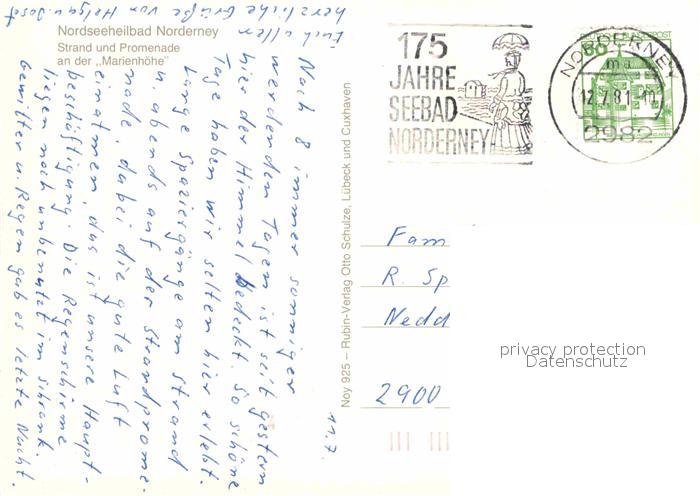 Nordseeheilbad Norderney
Strand und Promenade
an der „Marienhöhe"
175
JAHRE
SEEBAD
NORDERNEY
NORDERNEY
ma
12.7.81
2982
80
Noy 925 – Rubin-Verlag Otto Schulze, Lübeck und Cuxhaven
11.7.
Nach 8 immer sonniger
werdenden Tagen ist seit gestern
hier der Himmel bedeckt. So schöne
Tage haben wir selten hier erlebt.
Lange Spaziergänge am Strand
u abends auf der Strandprome-
nade, dabei die gute Luft
einatmen, das ist unsere Haupt-
beschäftigung. Die Regenschirme
liegen noch unbenutzt im Schrank.
Gewitter u Regen gab es letzte Nacht.
Euch allen
herzliche Grüße von Helga u. Josef
Fam
R. Sp
Nedd
2900
privacy protection
Datenschutz